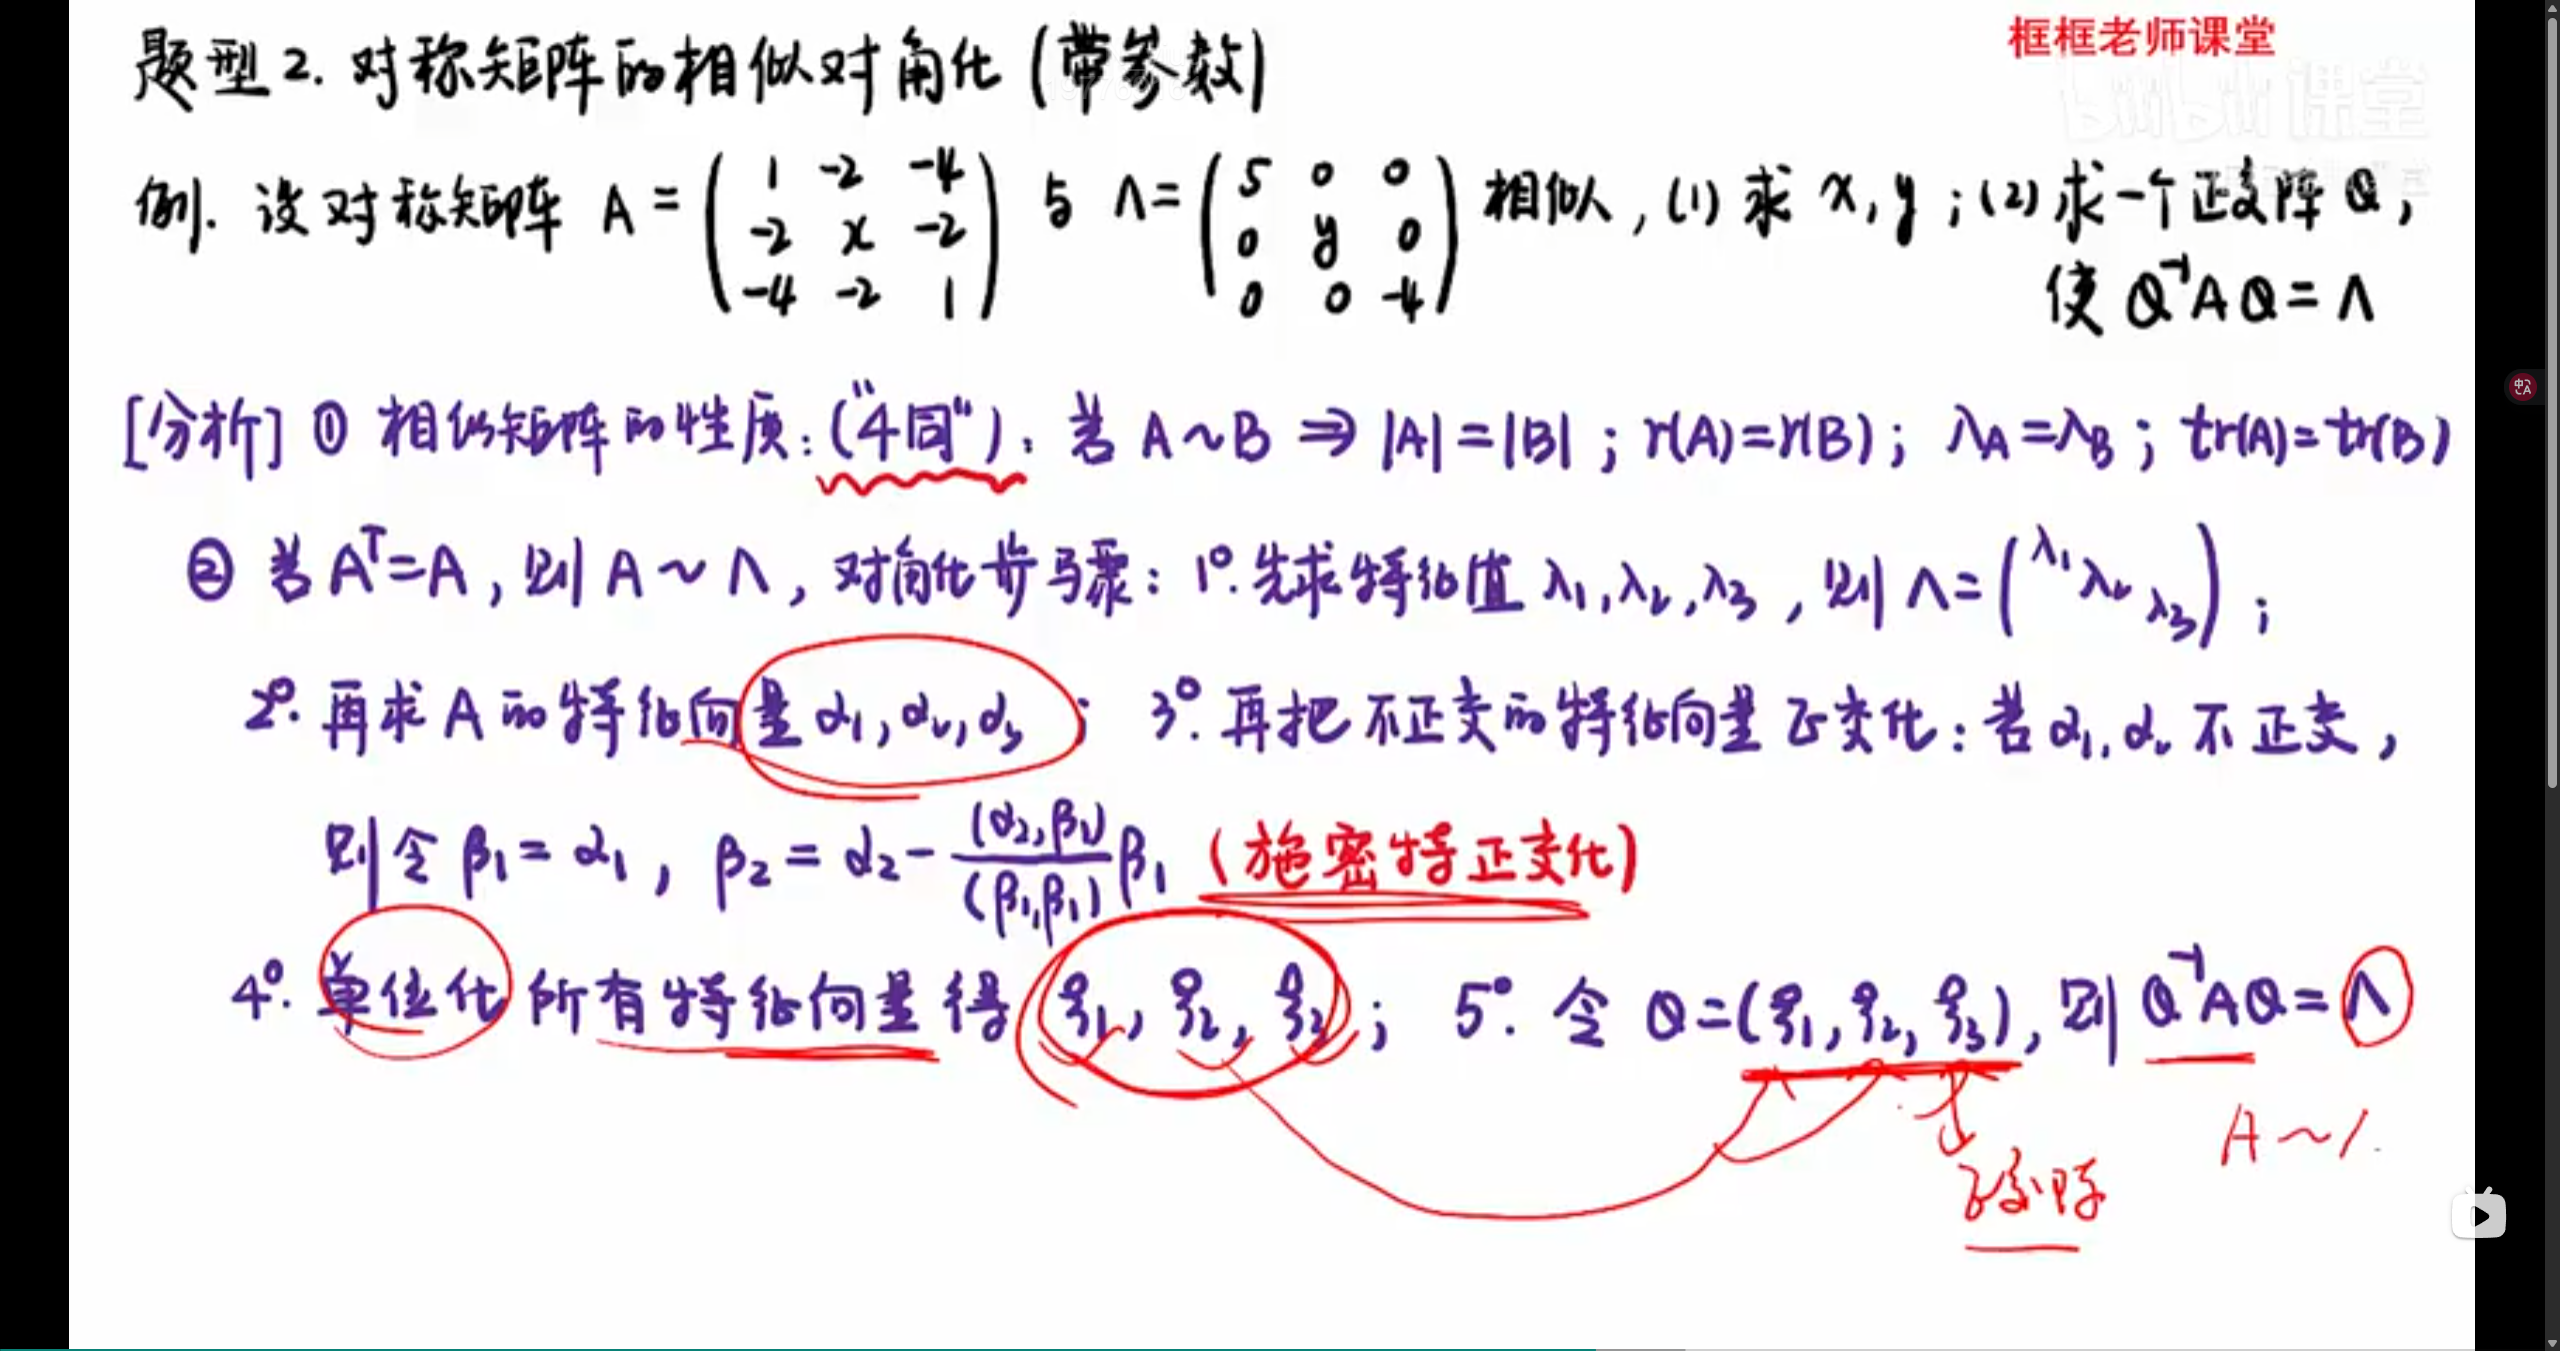 框框老师课堂
bilibili课堂
题型2. 对称矩阵的相似对角化 (带参数)
例. 设对称矩阵 A = ( 1 -2 -4 ; -2 x -2 ; -4 -2 1 ) 与 Λ= ( 5 0 0 ; 0 y 0 ; 0 0 -4 ) 相似, (1) 求 x, y ; (2) 求一个正交阵 Q,
使 Q⁻¹AQ = Λ
[分析] ① 相似矩阵的性质: ("4同"): 若 A~B ⇒ |A|=|B| ; r(A)=r(B); λA=λB ; tr(A)=tr(B)
② 若 Aᵀ=A, 则 A ~ Λ, 对角化步骤: 1°. 先求特征值 λ1, λ2, λ3, 则 Λ=(λ1 λ2 λ3) ;
2°. 再求 A 的特征向量 α1, α2, α3 ; 3°. 再把不正交的特征向量正交化: 若 α1, α2 不正交,
则令 β1 = α1, β2 = α2 - (α2,β1)/(β1,β1) β1 (施密特正交化)
4°. 单位化所有特征向量得 ξ1, ξ2, ξ3 ; 5°. 令 Q=(ξ1, ξ2, ξ3), 则 Q⁻¹AQ = Λ
A ~ Λ.
正交阵